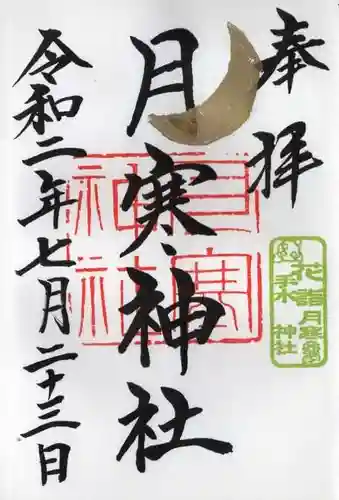 奉拝
月寒神社
令和二年七月二十三日
月寒
神社
月寒
神社